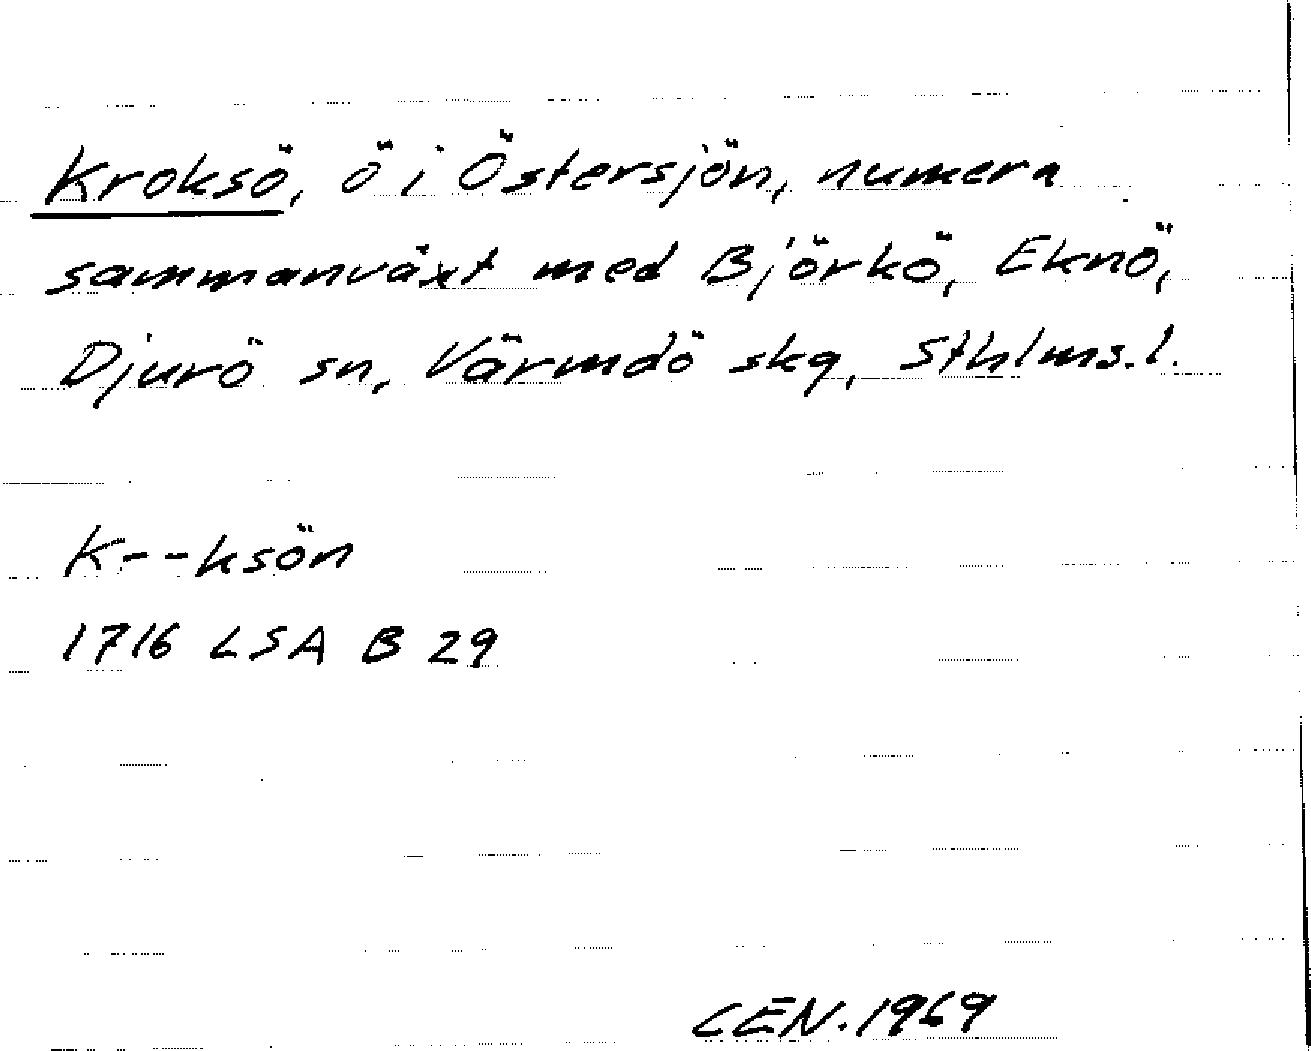 Kroksö, ö i Östersjön, numera
sammanväxt med Björkö, Eknö,
Djurö sn, Värmdö skg, Sthlms.l.
K--ksön
1716 LSA B 29
CEN.1969